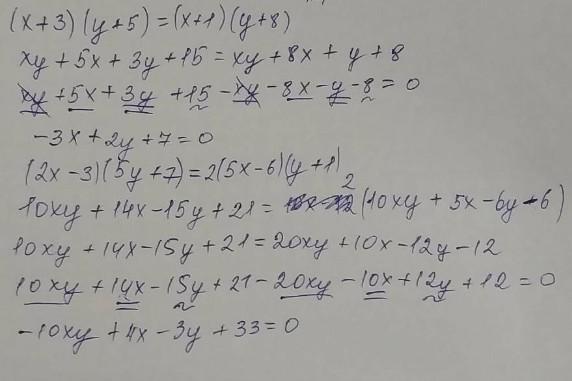 (x+3)(y+5)=(x+1)(y+8)
xy+5x+3y+15=xy+8x+y+8
xy+5x+3y+15-xy-8x-y-8=0
-3x+2y+7=0
(2x-3)(5y+7)=2(5x-6)(y+1)
10xy+14x-15y+21=2(10xy+5x-6y-6)
10xy+14x-15y+21=20xy+10x-12y-12
10xy+14x-15y+21-20xy-10x+12y+12=0
-10xy+4x-3y+33=0